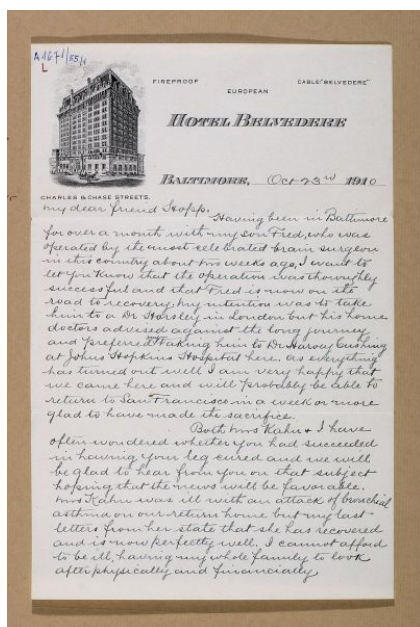 A 1671/55/1
L
FIREPROOF
EUROPEAN
CABLE "BELVEDERE"
HOTEL BELVEDERE
BALTIMORE, Oct 23rd 1910
CHARLES & CHASE STREETS.
My dear friend Hopp.
Having been in Baltimore
for over a month with my son Fred, who was
operated by the most celebrated brain surgeon
in this country about two weeks ago, I want to
let you know that the operation was thoroughly
successful and that Fred is now on the
road to recovery, my intention was to take
him to a Dr Horsley in London but his home
doctors advised against the long journey
and preferred taking him to Dr Harvey Cushing
at Johns Hopkins Hospital here, as everything
has turned out well I am very happy that
we came here and will probably be able to
return to San Francisco in a week or more
glad to have made the sacrifice.
Both Mrs Kahn & I have
often wondered whether you had succeeded
in having your leg cured and we will
be glad to hear from you on that subject
hoping that the news will be favorable.
Mrs Kahn was ill with an attack of bronchial
asthma on our return home but my last
letters from her state that she has recovered
and is now perfectly well. I cannot afford
to be ill, having my whole family to look
after physically and financially